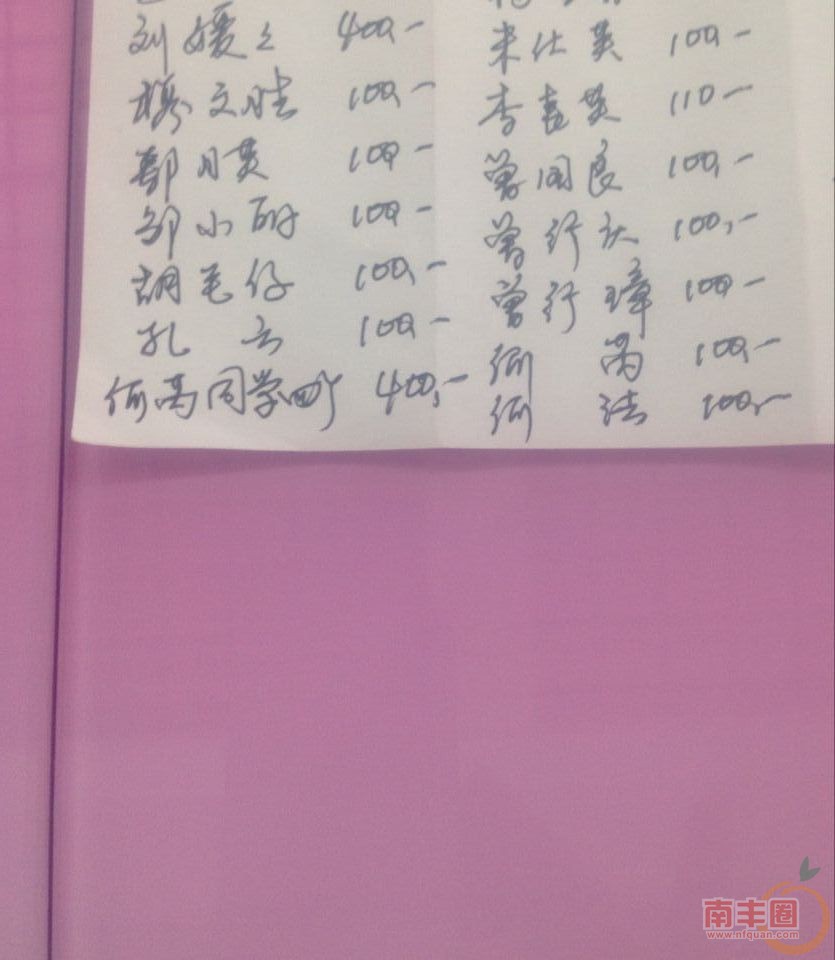 刘媛々 400-
穆文胜 100-
鄢月英 100-
邹小耐 100-
胡毛仔 100-
孔云 100-
何高同学四个 400-
来仕英 100-
李喜英 110-
曾国良 100-
曾行 100-
曾行璋 100-
何 100-
何 100-
南丰圈
www.nfquan.com